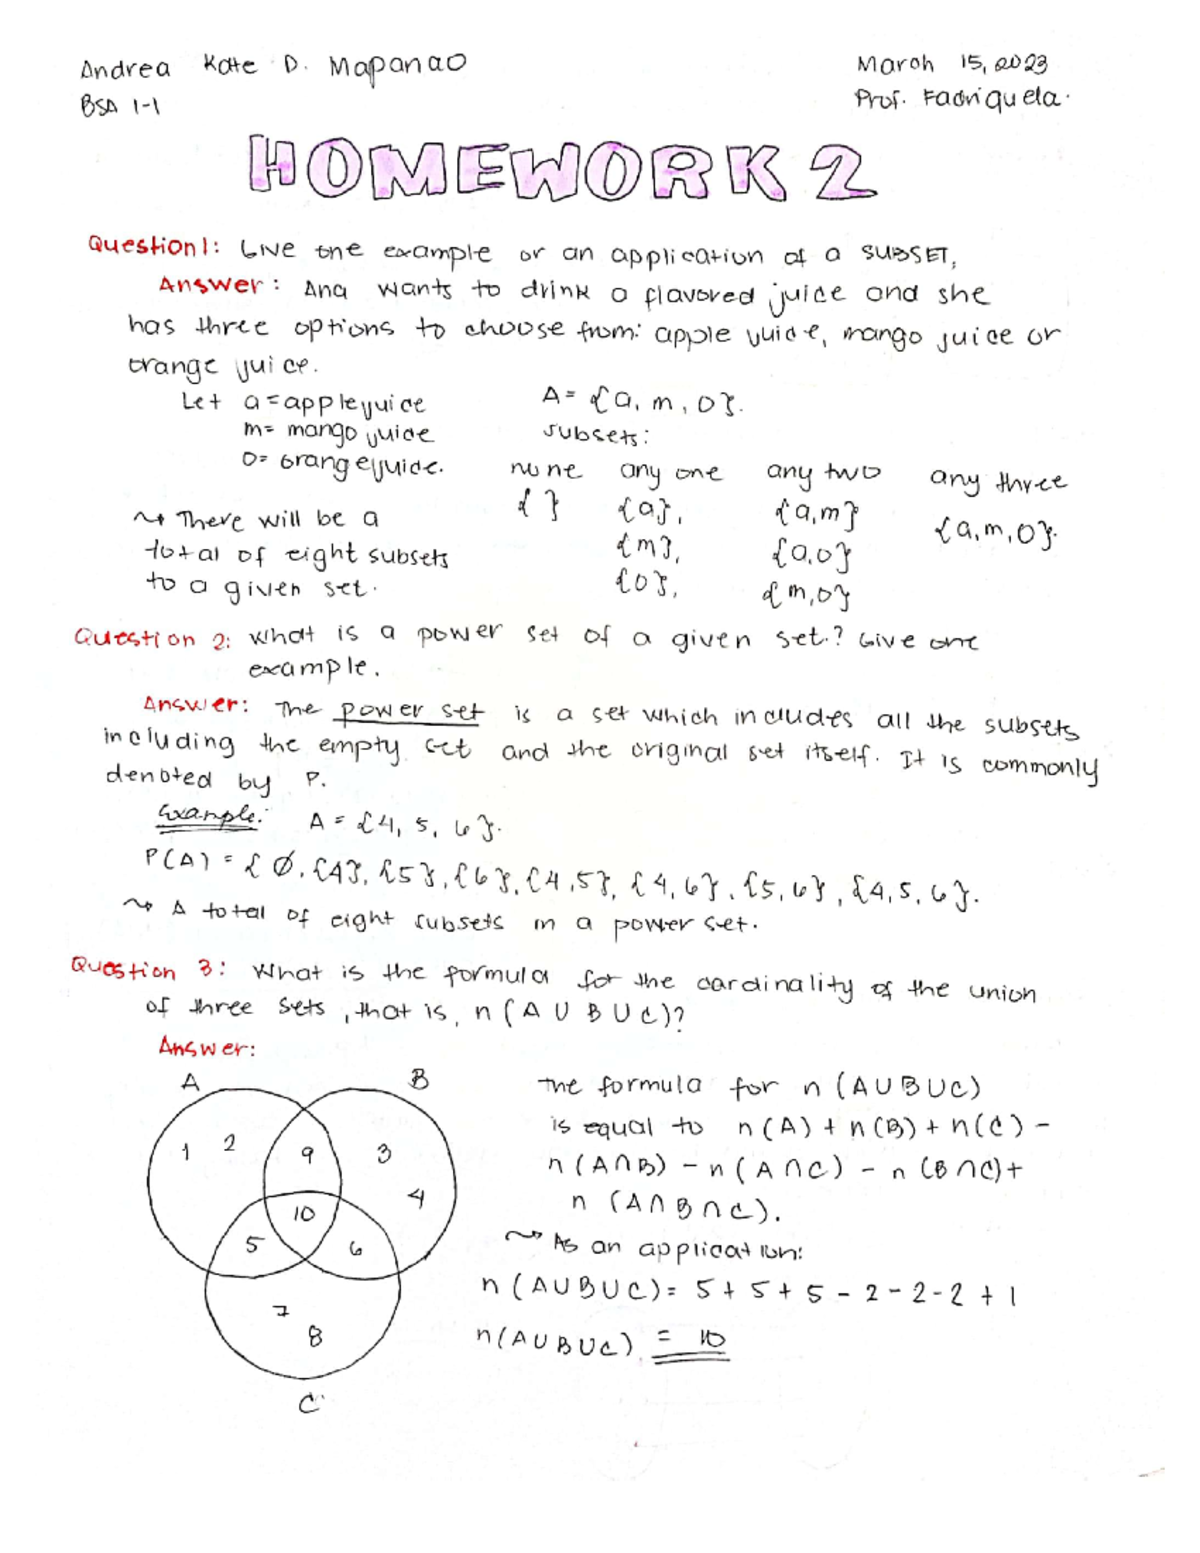 Andrea Kate D. Mapanao
March 15, 2023
BSA 1-1
Prof. Fadriquela.
HOMEWORK 2
Question 1: Give one example or an application of a SUBSET,
Answer: Ana wants to drink a flavored juice and she
has three options to choose from: apple juice, mango juice or
orange juice.
Let a = apple juice
A = {a, m, o}.
m = mango juice
subsets:
o = orange juice.
none any one any two any three
{ } {a}, {a,m} {a,m,o}.
↝ There will be a
total of eight subsets
to a given set.
{m}, {a,o}
{o}, {m,o}
Question 2: What is a power set of a given set? Give one
example.
Answer: The power set is a set which includes all the subsets
including the empty set and the original set itself. It is commonly
denoted by P.
Example: A = {4, 5, 6}.
P(A) = { Ø, {4}, {5}, {6}, {4,5}, {4,6}, {5,6}, {4,5,6}.
↝ A total of eight subsets in a power set.
Question 3: What is the formula for the cardinality of the union
of three sets, that is, n(A U B U C)?
Answer:
A
B
1 2 9 3
4
10
5 6
7
8
C
The formula for n (A U B U C)
is equal to n(A) + n(B) + n(C) -
n(A∩B) - n(A∩C) - n(B∩C) +
n (A∩B∩C).
↝ As an application:
n(A U B U C) = 5 + 5 + 5 - 2 - 2 - 2 + 1
n(A U B U C) = 10